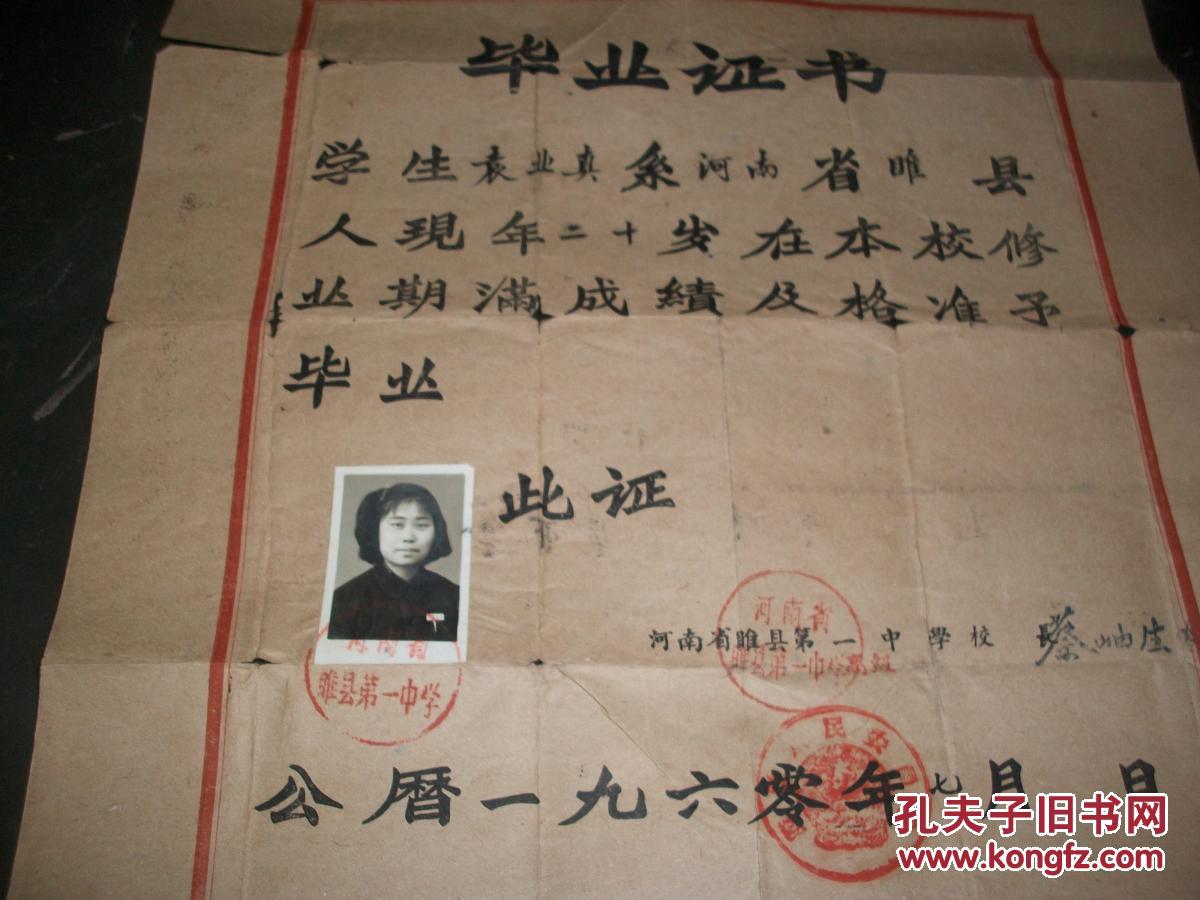 毕业证书
学生袁业真系河南省睢县
人现年二十岁在本校修
业期满成績及格准予
毕业
此证
河南省睢县第一中學校長蔡岫生
河南省
睢县第一中学
河南省
睢县第一中学
公曆一九六零年七月 日
孔夫子旧书网
www.kongfz.com